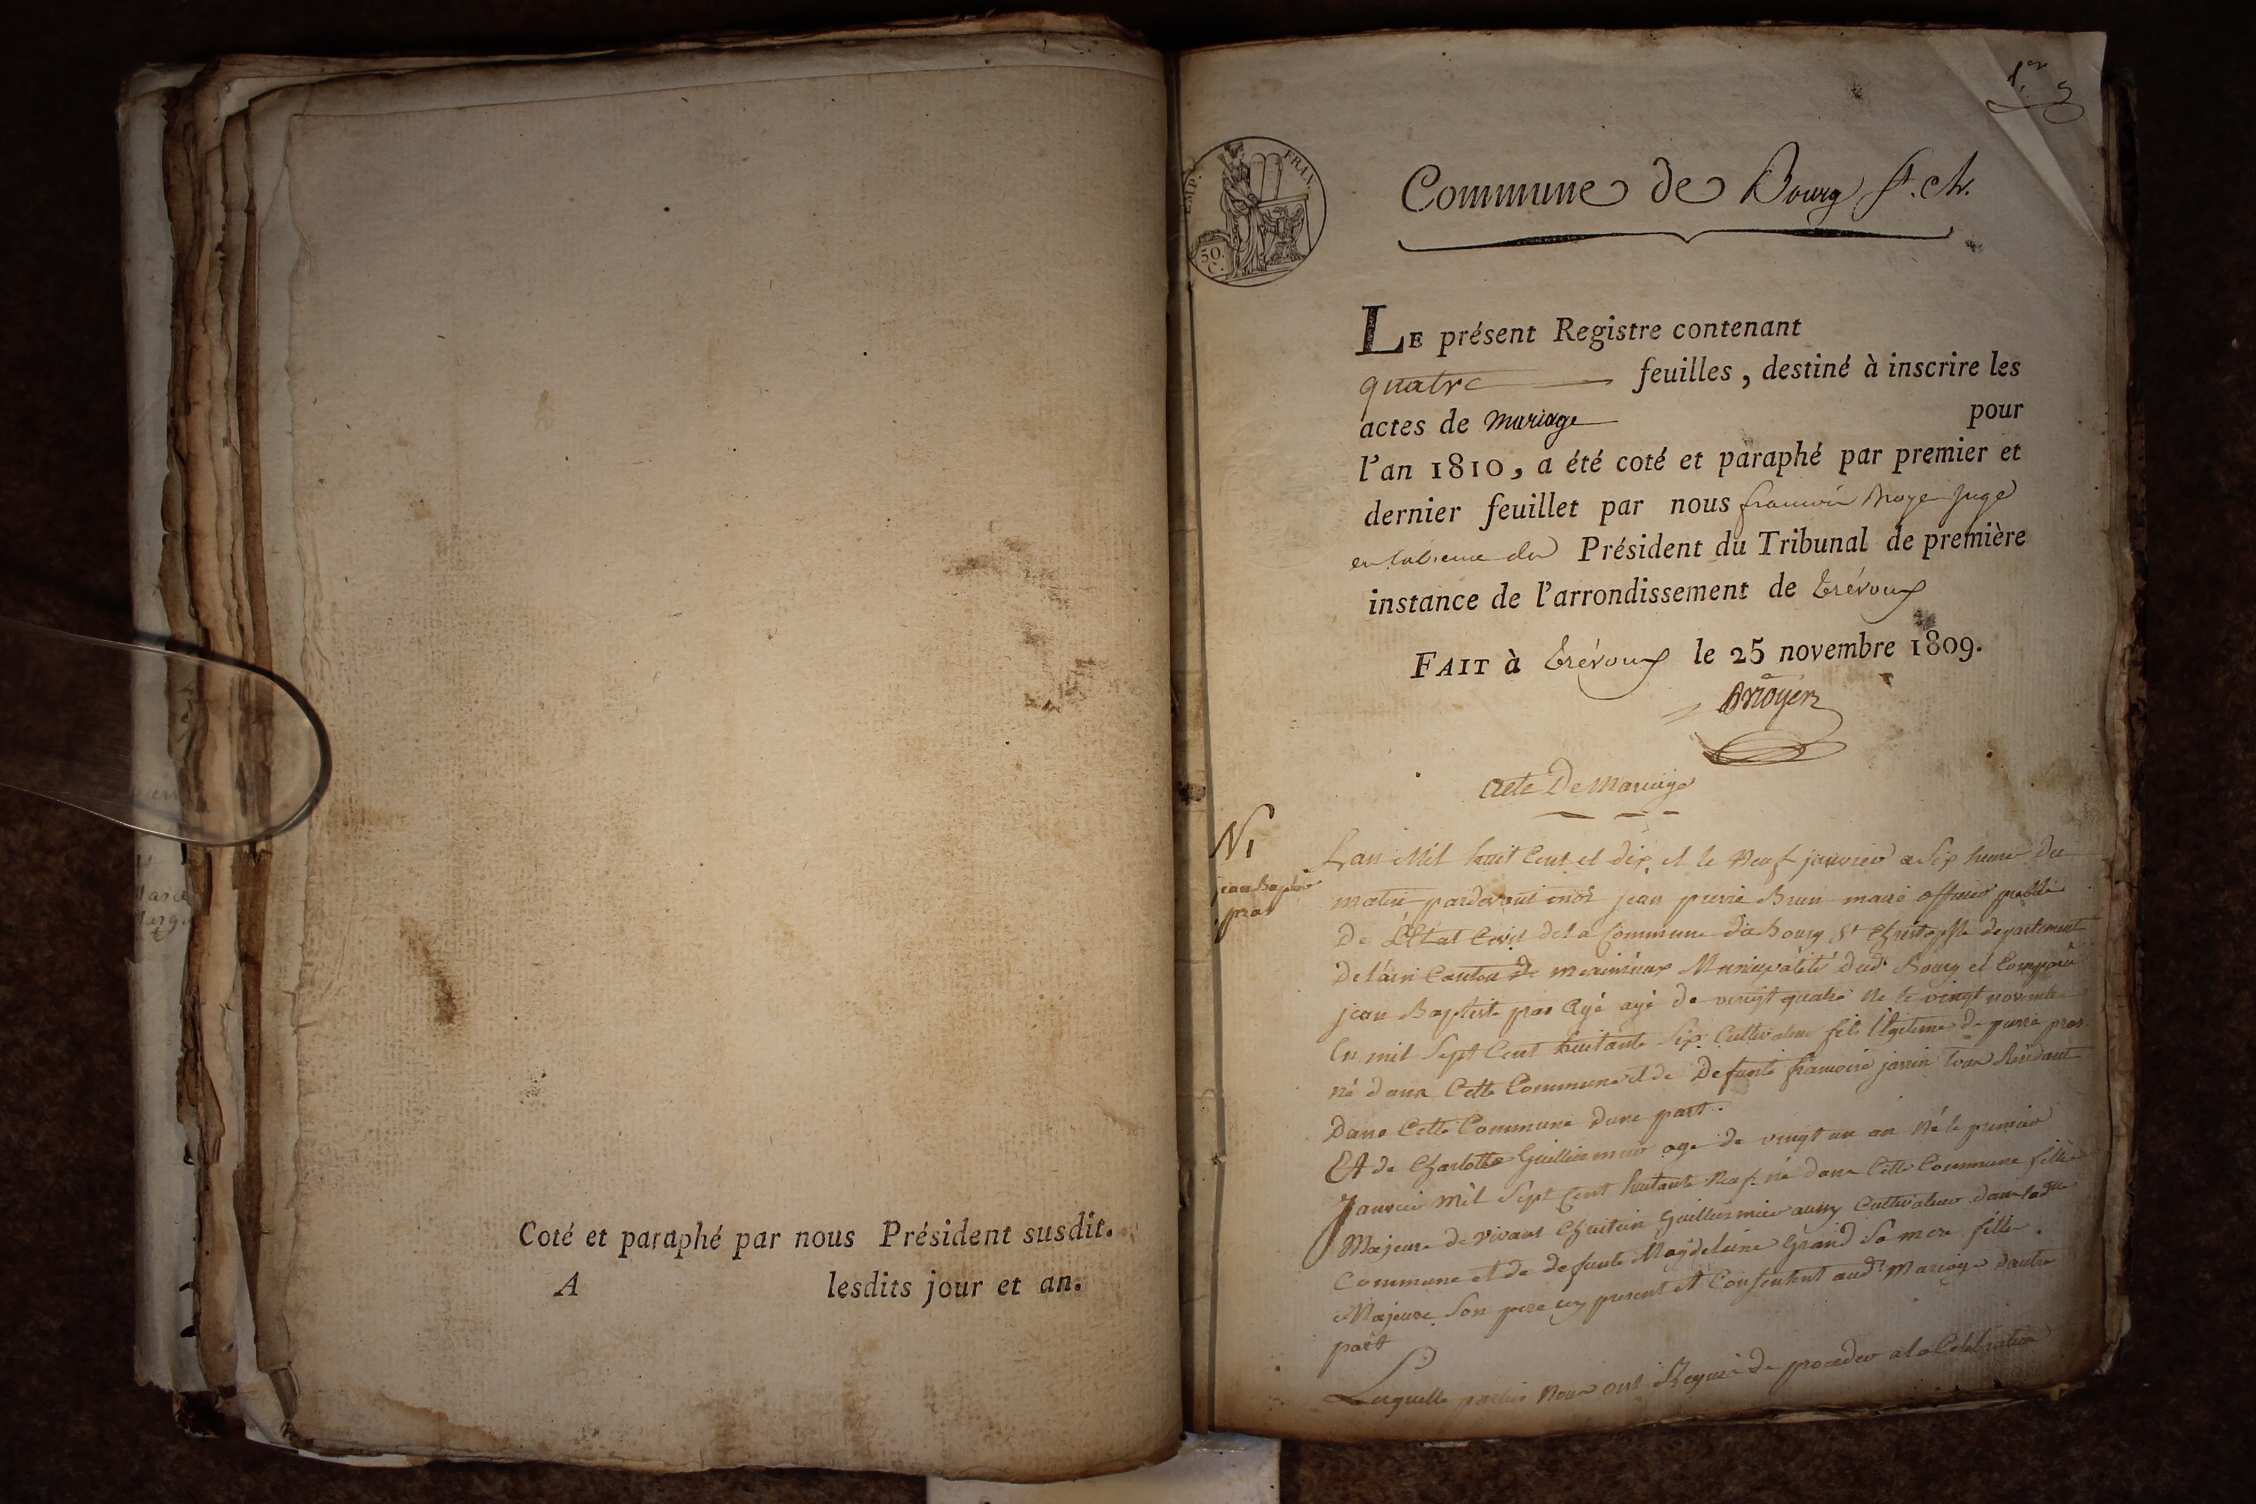 Coté et paraphé par nous Président susdit.
A lesdits jour et an.
1er
EMP. FRAN.
50.
C.
Commune de Bourg St. ch.
LE présent Registre contenant
quatre feuilles, destiné à inscrire les
actes de mariage pour
l'an 1810, a été coté et paraphé par premier et
dernier feuillet par nous juge
Président du Tribunal de première
instance de l'arrondissement de trévoux
FAIT à trévoux le 25 novembre 1809.
acte De Mariage
N 1
jean Baptiste
pras
Lan Mil huit Cent et dix et le Neuf janvier a Six heure Du
matin pardevant nous jean pierre Brun maire officier public
De L'Etat Civil de la Commune du Bourg St Christophle departement
De l'ain Canton de meximieux Municipalité dud. Bourg et Comparu
jean Baptiste pras agé de vingt quatre Né le vingt novembre
En mil Sept Cent huitante Six Cultivateur fils légitime de pierre pras
né dans Cette Commune et de Defunte francoise
Dans Cette Commune dune part.
Et de Charlotte Guillermier age de vingt un an Né le premier
Janvier Mil Sept Cent huitante Neuf né dans Cette Commune fille
Majeure de vivant Guillermier aussy Cultivateur dans
Commune et de defunte Magdeleine Grand Sa mere fille
Majeure Son pere icy present et Consentent aud. Mariage dautre
part
Lesquelle parties Nous ont Requis de proceder a la Celebration